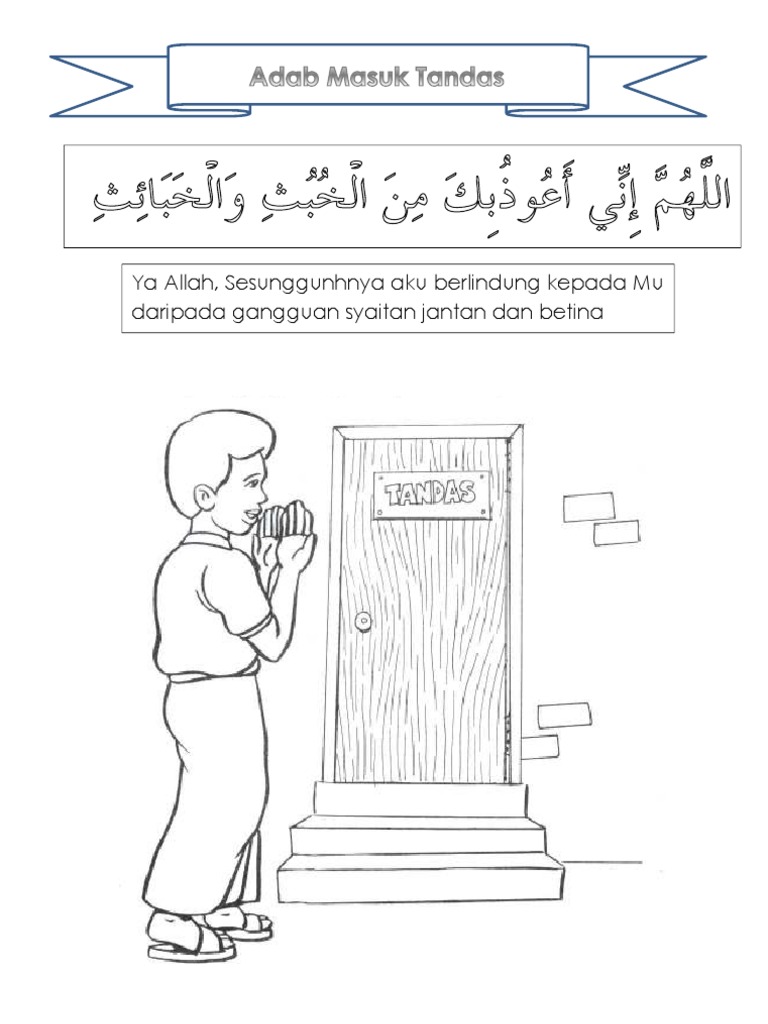 Adab Masuk Tandas
اللَّهُمَّ إِنِّي أَعُوذُبِكَ مِنَ الْخُبُثِ وَالْخَبَائِثِ
Ya Allah, Sesunggunhnya aku berlindung kepada Mu
daripada gangguan syaitan jantan dan betina
TANDAS